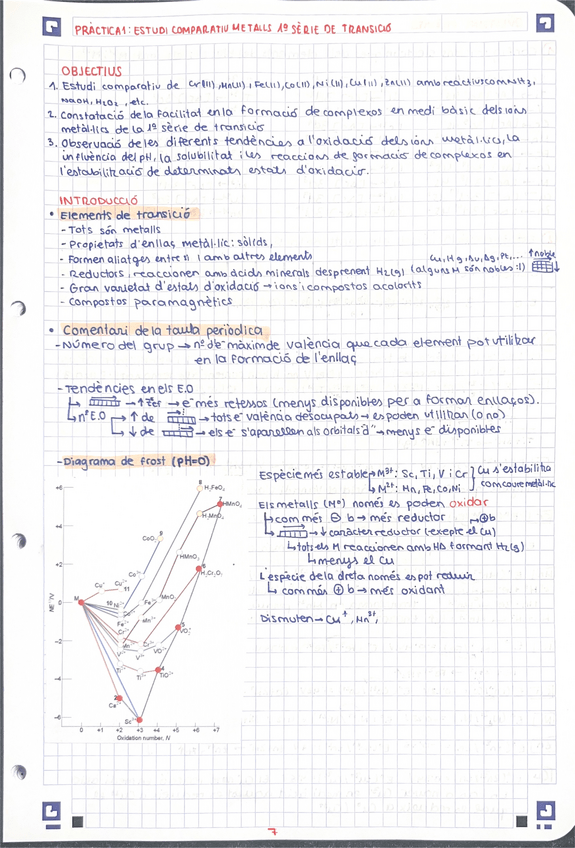 PRÀCTICA 1: ESTUDI COMPARATIU METALLS 1ª SÈRIE DE TRANSICIÓ
OBJECTIUS
1. Estudi comparatiu de Cr(III), Mn(II), Fe(III), Co(II), Ni(II), Cu(II), Zn(II) amb reactius com NH3,
NaOH, H2O2, etc.
2. Constatació de la facilitat en la formació de complexos en medi bàsic dels ions
metàl·lics de la 1ª sèrie de transició
3. Observació de les diferents tendències a l'oxidació dels ions metàl·lics, la
influència del pH, la solubilitat i les reaccions de formació de complexos en
l'estabilització de determinats estats d'oxidació.
INTRODUCCIÓ
• Elements de transició
- Tots són metalls
- Propietats d'enllaç metàl·lic: sòlids,
- Formen aliatges entre si i amb altres elements
Cu, Hg, Au, Ag, Pt,... ↑noble
- Reductors, reaccionen amb àcids minerals desprenent H2(g) (alguns M són nobles :()
- Gran varietat d'estats d'oxidació → ions i compostos acolorits
- Compostos paramagnètics
• Comentari de la taula periòdica
- Número del grup → nº d'e⁻ màxim de valència que cada element pot utilitzar
en la formació de l'enllaç
- Tendències en els E.O
→ ↑Zef → e⁻ més retessos (menys disponibles per a formar enllaços).
nº E.O → ↑ de → tots e⁻ valència desocupats → es poden utilitzar (o no)
↓ de → els e⁻ s'aparellen als orbitals "d" → menys e⁻ disponibles
- Diagrama de frost (pH=0)
Espècie més estable → M³⁺: Sc, Ti, V i Cr
M²⁺: Mn, Fe, Co, Ni
Cu s'estabilitza
com coure metàl·lic
Els metalls (M⁰) només es poden oxidar
com més ⊖ b → més reductor
→ ⊕b
→ ↓ caràcter reductor (excepte el Cu)
tots els M reaccionen amb HD formant H2(g)
menys el Cu
L'espècie de la dreta només es pot reduir
com més ⊕ b → més oxidant
Dismuten → Cu⁺, Mn³⁺,
+6
+4
+2
0
−2
−4
−6
NE°/V
M
H2FeO4
HMnO4
H3MnO4
CoO2
HMnO3
H2Cr2O7
Co³⁺
MnO2
Cu⁺
Cu²⁺
11
10 Ni²⁺
Co²⁺
Fe³⁺
Fe²⁺
Mn³⁺
Cr²⁺
Mn²⁺
Cr³⁺
V²⁺
V³⁺
VO²⁺
VO2⁺
Ti²⁺
Ti³⁺
TiO²⁺
Ca²⁺
Sc³⁺
0 +1 +2 +3 +4 +5 +6 +7
Oxidation number, N
7